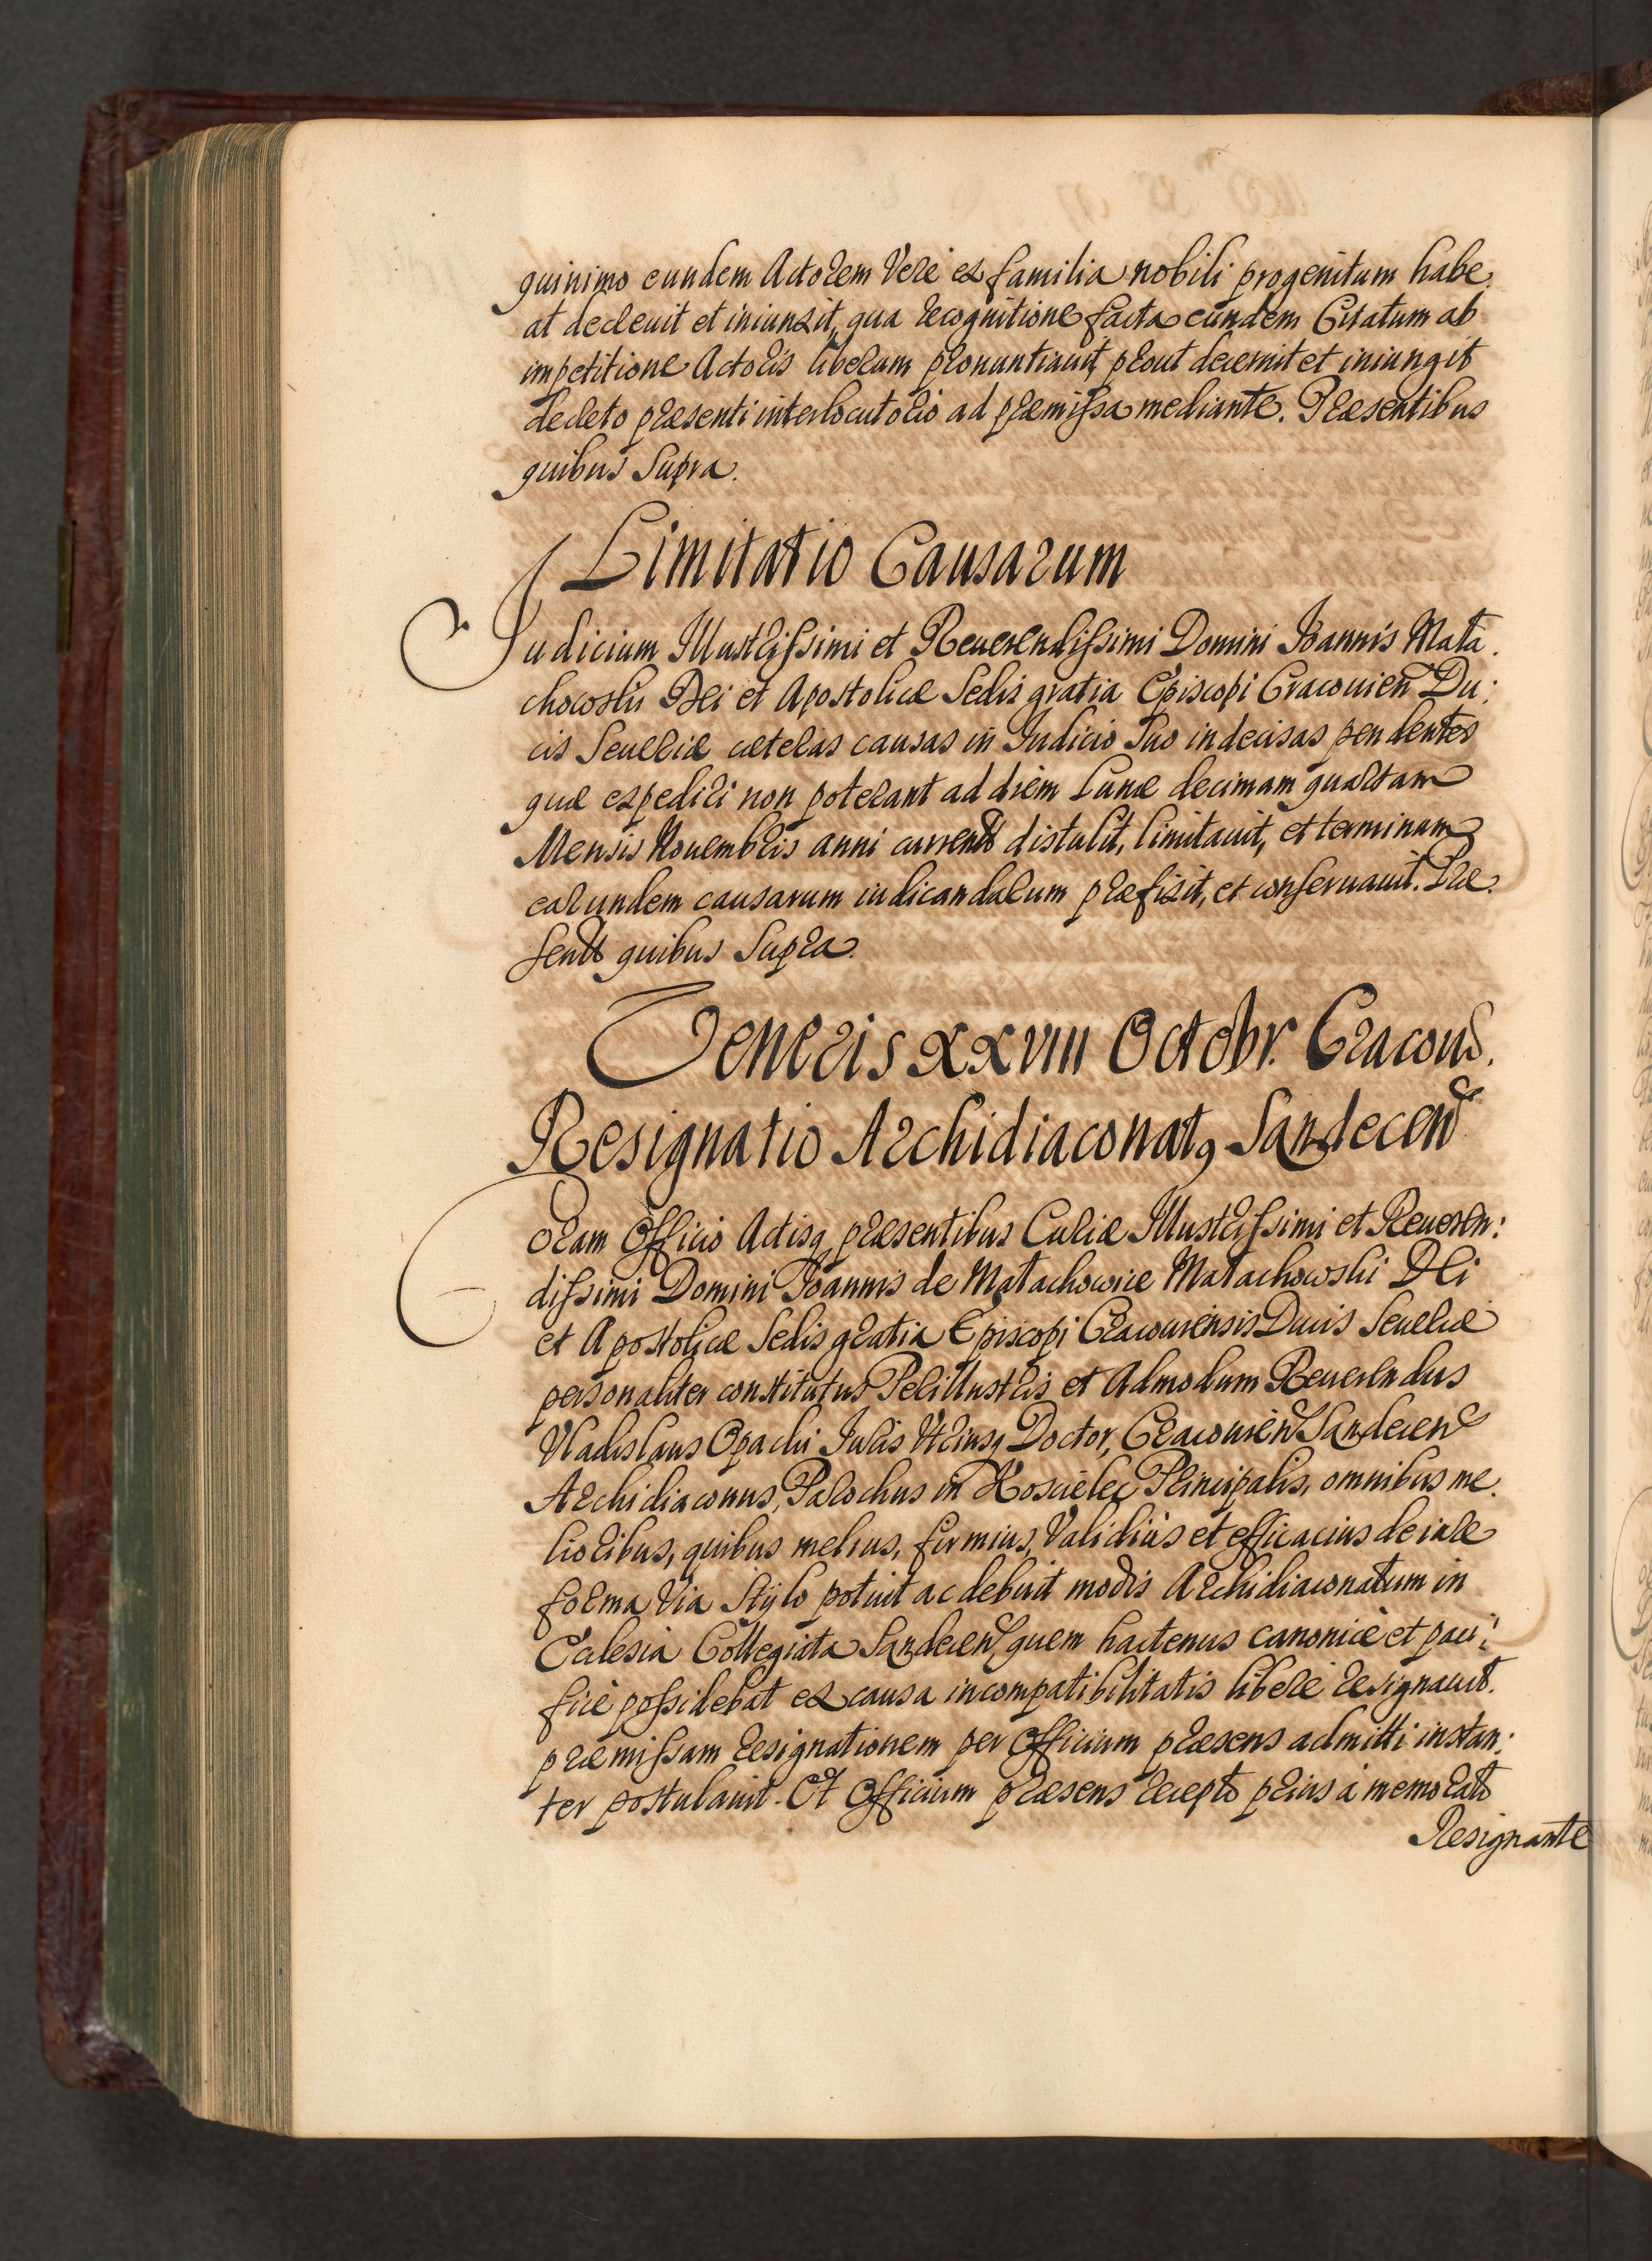 quinimo eundem Actorem Vere ex familia nobili progenitum habe.
at decreuit et iniunxit, qua recognitione facta eundem Citatum ab
impetitione Actoris liberum pronuntiauit, prout decernit et iniungit
decreto præsenti interlocutorio ad præmissa mediante. Præsentibus
quibus Supra.
Limitatio Causarum
Iudicium Illustrissimi et Reuerendissimi Domini Ioannis Mała.
chowski Dei et Apostolicæ Sedis gratia Episcopi Cracouien Du:
cis Seueriæ cæteras causas in Iudicio Suo indecisas pendentes
quæ expediri non poterant ad diem Lunæ decimam quartam
Mensis Nouembris anni currentis distulit, limitauit, et terminum
earundem causarum iudicandarum præfixit, et conseruauit. Præ.
sentt quibus Supra.
Veneris XXVIII Octobr. Cracou.
Resignatio Archidiaconatq Sandecen
Coram Officio Actisq præsentibus Curiæ Illustrissimi et Reueren:
dissimi Domini Ioannis de Małachowice Małachowski Dei
et Apostolicæ Sedis gratia Episcopi Cracouiensis Ducis Seueriæ
personaliter constitutus Perillustris et Admodum Reuerendus
Vladislaus Opacki Iuris Vtriusq Doctor, Cracouien Sandecen
Archidiaconus, Parochus in Koscielec Principalis, omnibus me.
lioribus, quibus melius, firmius, Validius et efficacius de iure
forma Via Stylo potuit ac debuit modis Archidiaconatum in
Ecclesia Collegiata Sandecen, quem hactenus canonice et paci:
fice possidebat ex causa incompatibilitatis libere resignauit.
præmissam resignationem per Officium præsens admitti instan:
ter postulauit. Et Officium præsens recepto prius à memorato
Resignante